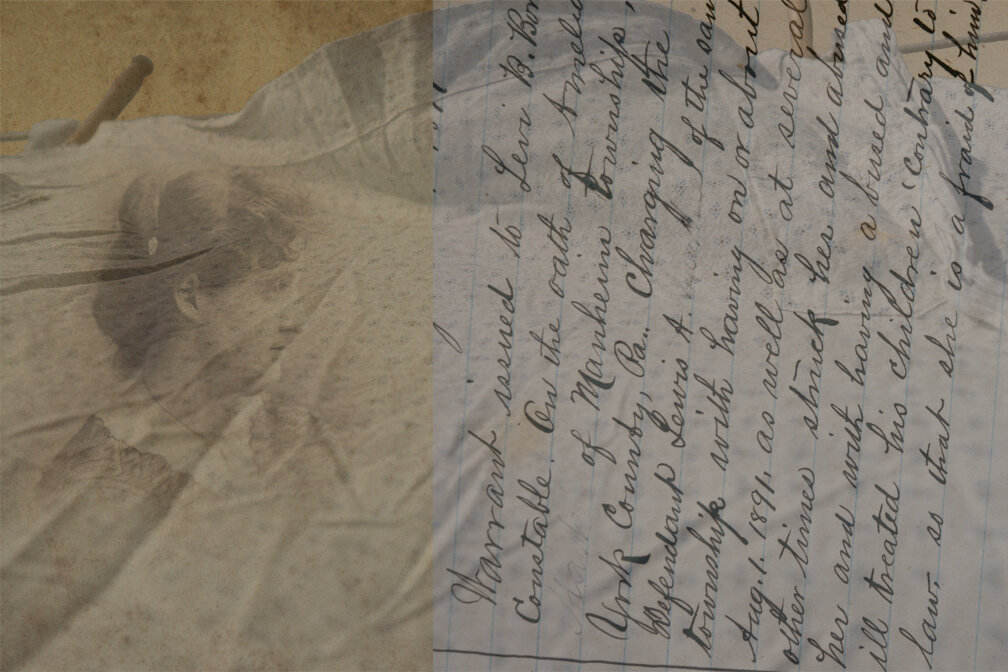 Warrant issued to Levi B. Bon
Constable. On the oath of Amelia
of Manheim township,
York County, Pa. Charging the
Defendant Lewis A. of the sam
township with having on or about
Aug. 1. 1891. as well as at several
other times struck her and abused
her and with having abused and
ill treated his children contrary to
law. so that she is afraid of him.